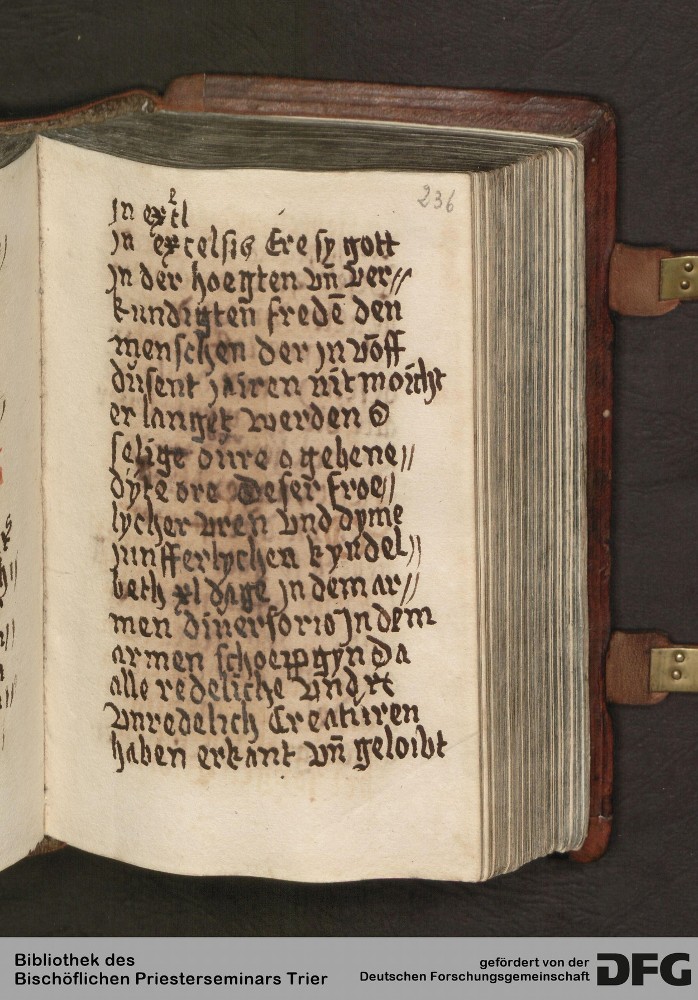 236
Jn extl
Jn excelsis Ere sy gott
Jn der hoegten vn̄ ver//
kundigten fredē den
menschen der jn võff
dusent jairen nit moicht
er langet werden O
selige oure o gebene//
dyte ore Deser froe//
lycher vren vnd dyme
junfferlychen kyndel//
beth xl dage jn dem ar//
men diuersorio Jn dem
armen schoep gyn Da
alle redeliche vnd
vnredelich Creaturen
haben erkant vn̄ geloibt
Bibliothek des
Bischöflichen Priesterseminars Trier
gefördert von der
Deutschen Forschungsgemeinschaft
DFG